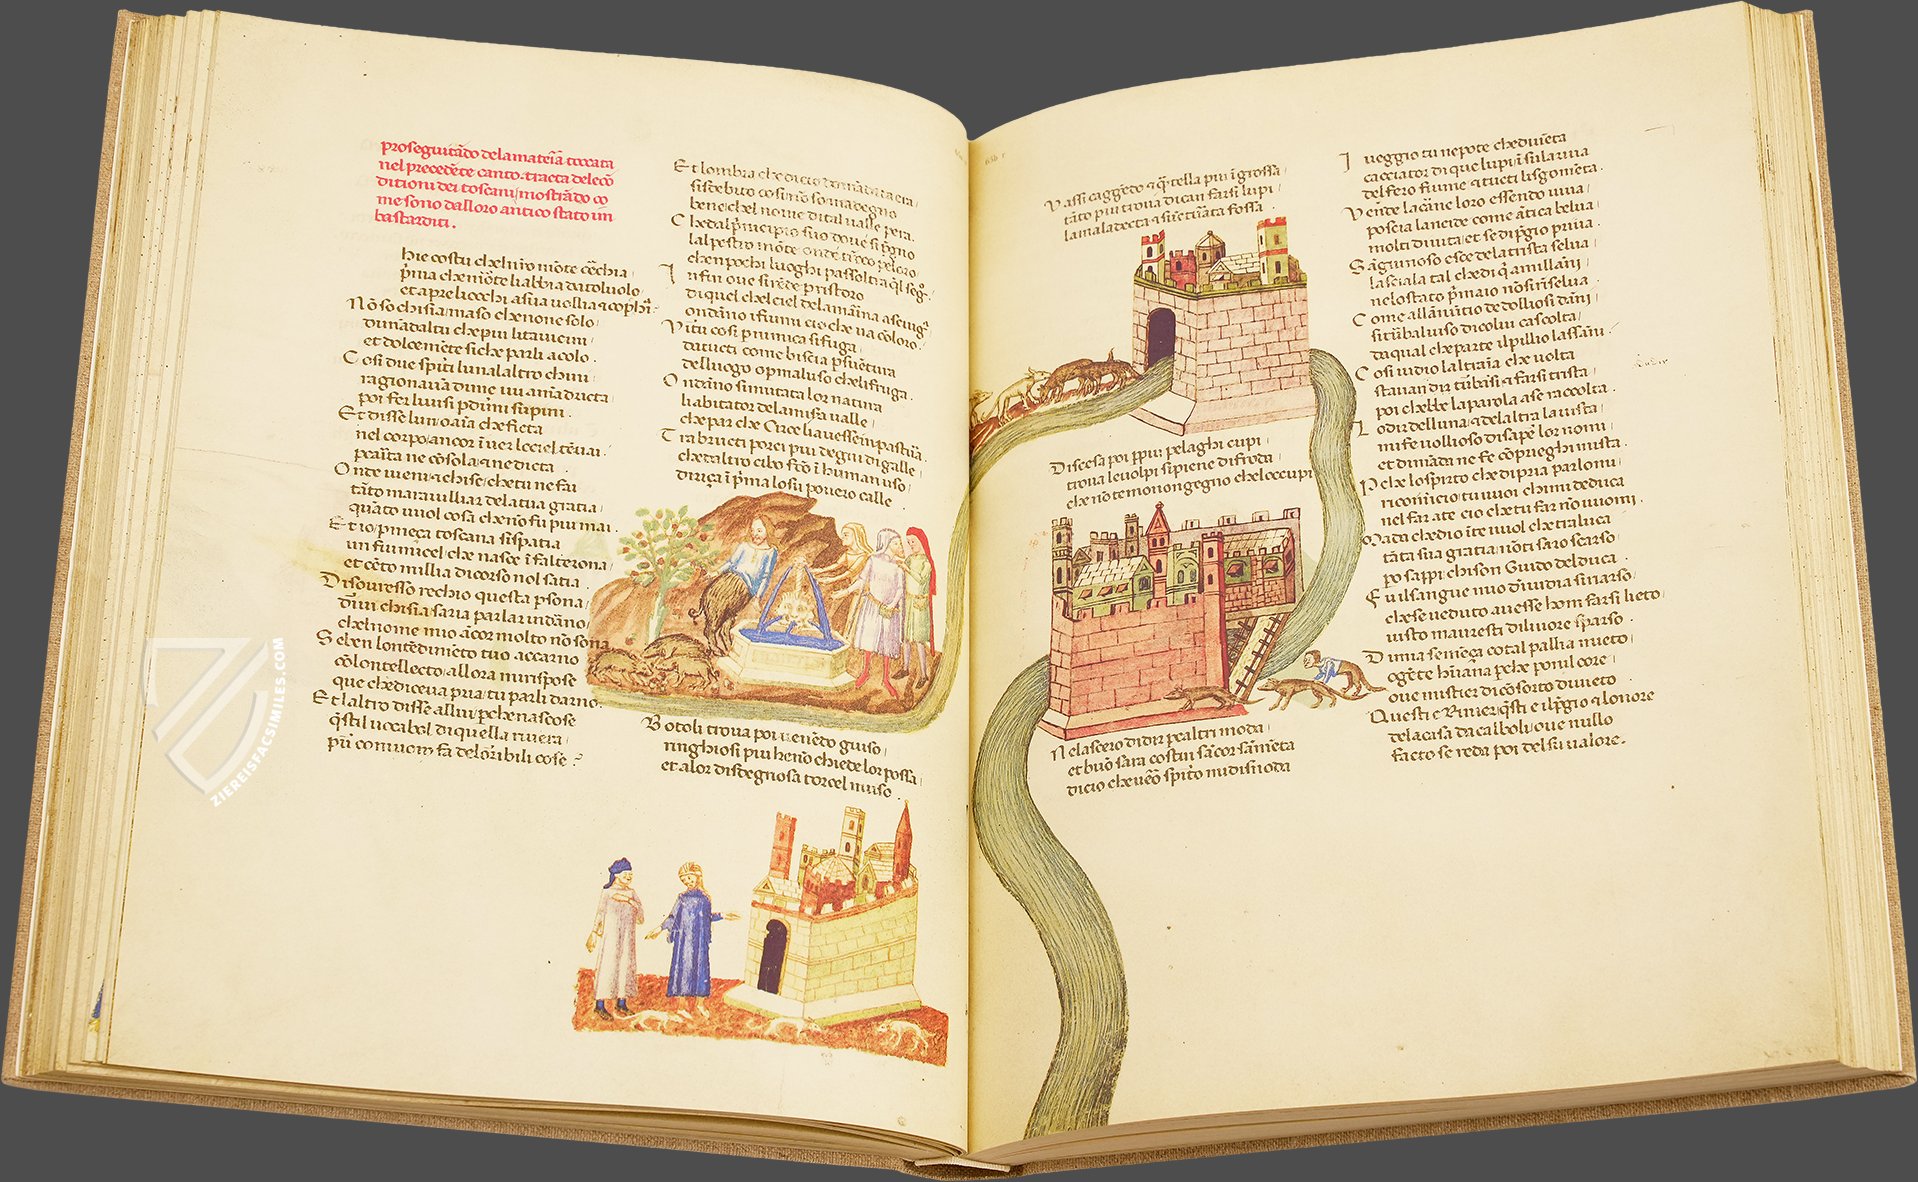 proseguitãdo delamateiã toccata
nel precedẽte canto tracta delecõ
ditioni dei toscani mostrãdo co
me sono dalloro antico stato ĩn
bastarditi.
hie costui chelnr̃o mõte cẽrchia
p̃ma chemõte habbia datoluolo
et apre liocchi asua uollia &
Nõ so chisia maso chenone solo
dunãdaltu chepiu litauicini
et dolcemẽte siche parli acolo.
Cosi due spĩti lunalaltro chini
ragionauã dime iui amã ducta
poi fer liuisi pdirmi supini.
Et disse luno aĩa cheficta
nel corpo ancor ĩ uer lo ciel tẽ uai.
p carita ne cõsola & ne dicta
Onde uieni & chise che tu ne fai
tãto marauilliar dela tua gratia
quãto uuol cosa che nõ fu piu mai.
Et io p meça toscana si spatia
un fiumicel che nasce ĩ falterona
et cẽto millia di corso nol satia
Di souresso rechio questa p̃sona
dirui chisia saria parlar ĩndãno
chelnome mio ãcor molto nõ sona
Se ben lontẽdimẽto tuo accarno
cõlontellecto allora mirispose
que che diceua pria tu parli darno.
Et laltro disse allui pche nascose
q̃sti uocabol di quella riuera
pur comuom fa delorribili cose
Et lombra che dicio domãdata era
si sdebito cosi nõ so ma degno
ben e chel nome dital ualle pera.
Che dal p̃ncipio suo doue si p̃gno
lalpestro mõte onde trõco peloro
chen pochi luoghi passoltra q̃l segº.
Infin oue si rẽde p ristoro
di quel chel ciel dela marina asciugª
ondãno i fiumi cio che ua cõloro.
Vitu cosi p nimica si fuga
datucti come biscia p suẽtura
delluogo o p mal uso che li fruga.
Ondãno si mutata lor natura
li habitator dela misera ualle
che par che Circe li auesse in pastura.
Tra brutti porci piu degni di galle
che daltro cibo fcõ ĩ human uso
driça ĩ p̃ma lo suo pouero calle
Botoli troua poi uenẽdo giuso
ringhiosi piu che nõ chiede lor possa
et alor disdegnosa torcel muso
Vassi caggẽdo & q̃tella piu ĩgrossa
tãto piu troua di can farsi lupi
la maladecta & suẽturata fossa.
Discesa poi p piu pelaghi cupi
troua le uolpi si piene di froda
che nõ temono ngegno che le occupi
Ne lascero di dir p caltri moda
et buõ sara costui sãcor sãmẽta
dicio che uero spirito mi disnoda
Io ueggio tu nepote che diuẽta
cacciator di que lupi ĩ sula riua
del fero fiume & tucti li sgomẽta.
Vẽnde la carne loro essendo uiua
poscia lancide come ãtica belua
molti di uita et se di p̃gio priua.
Sanguinoso esce dela trista selua
lasciala tal che di q̃ a mill ãni
nelo stato p̃maio nõ si rinselua
Come allanũtio de dolliosi dãni
si turba l uiso di colui cascolta
da qual che parte il pillio lassãni
Cosi uidio laltra aĩa che uolta
staua ad ir turbasi & farsi trista
poi chebbe la parola a se raccolta.
Lo dir delluna & delaltra la uista
mi fe uollioso di saper lor nomi
et dimãda ne fe cõ prieghi mista.
Pche lo spirto che di pria parlomi
ricomincio tu uuoi chi mi deduca
nel far a te cio che tu far nõ uuomi.
Ma da che dio ĩ te uuol che traluca
tãta sua gratia nõ ti saro scarso
po sappi chi son Guido del duca
Fu il sangue mio dinuidia si riarso
che se ueduto auesse hom farsi lieto
uisto mauresti di liuore sparso.
Di mia semẽça cotal pallia mieto
o gẽte humana pche poni l core
oue mistier di cõsorto diuieto.
Questi e Rinier q̃sti e il p̃gio & lonore
dela casa da calboli oue nullo
facto se reda poi del suo ualore.
ZIEREISFACSIMILES.COM